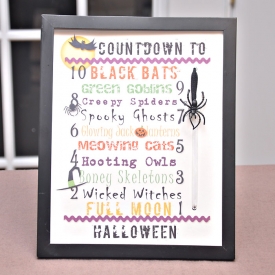 COUNTDOWN TO
10 BLACK BATS
GREEN GOBLINS 9
8 Creepy Spiders
Spooky Ghosts 7
6 Glowing Jack-o-lanterns
MEOWING CATS 5
4 Hooting Owls
Boney Skeletons 3
2 Wicked Witches
FULL MOON 1
HALLOWEEN